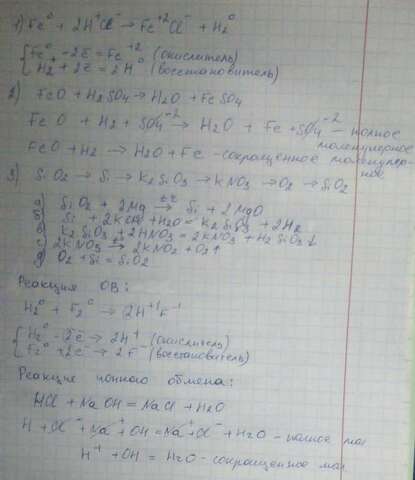 1) Fe⁰ + 2H⁺Cl⁻ → Fe⁺²Cl⁻ + H₂⁰
Fe⁰ - 2ē = Fe⁺² (окислитель)
H₂⁺ + 2ē = 2H⁰ (восстановитель)
2) FeO + H₂SO₄ → H₂O + FeSO₄
FeO + H₂ + SO₄⁻² → H₂O + Fe + SO₄⁻² - полное молекулярное
FeO + H₂ → H₂O + Fe - сокращенное молекулярное
3) SiO₂ → Si → K₂SiO₃ → KNO₃ → O₂ → SiO₂
а) SiO₂ + 2Mg → Si + 2MgO
б) Si + 2KOH + H₂O = K₂SiO₃ + 2H₂
в) K₂SiO₃ + 2HNO₃ = 2KNO₃ + H₂SiO₃↓
с) 2KNO₃ → 2KNO₂ + O₂↑
д) O₂ + Si = SiO₂
Реакция ОВ:
H₂⁰ + F₂⁰ → 2H⁺¹F⁻¹
H₂⁰ - 2ē → 2H⁺ (окислитель)
F₂⁰ + 2ē → 2F⁻ (восстановитель)
Реакция ионного обмена:
HCl + NaOH = NaCl + H₂O
H + Cl⁻ + Na⁺ + OH = Na⁺ + Cl⁻ + H₂O - полное мол
H⁺ + OH = H₂O - сокращенное мол